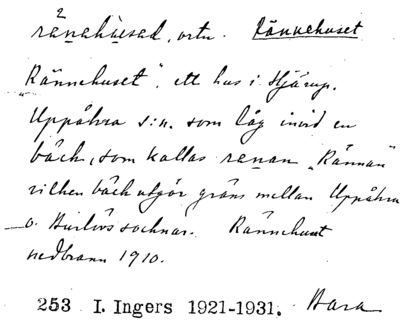 ränahúsad, ortn. Rännehuset
"Rännehuset", ett hus i Hjärup,
Uppåkra s:n. som låg invid en
bäck, som kallas renan "Rännan"
vilken bäck utgör gräns mellan Uppåkra
o. Burlövs socknar. Rännehuset
nedbrann 1910.
253 I. Ingers 1921-1931. Bara